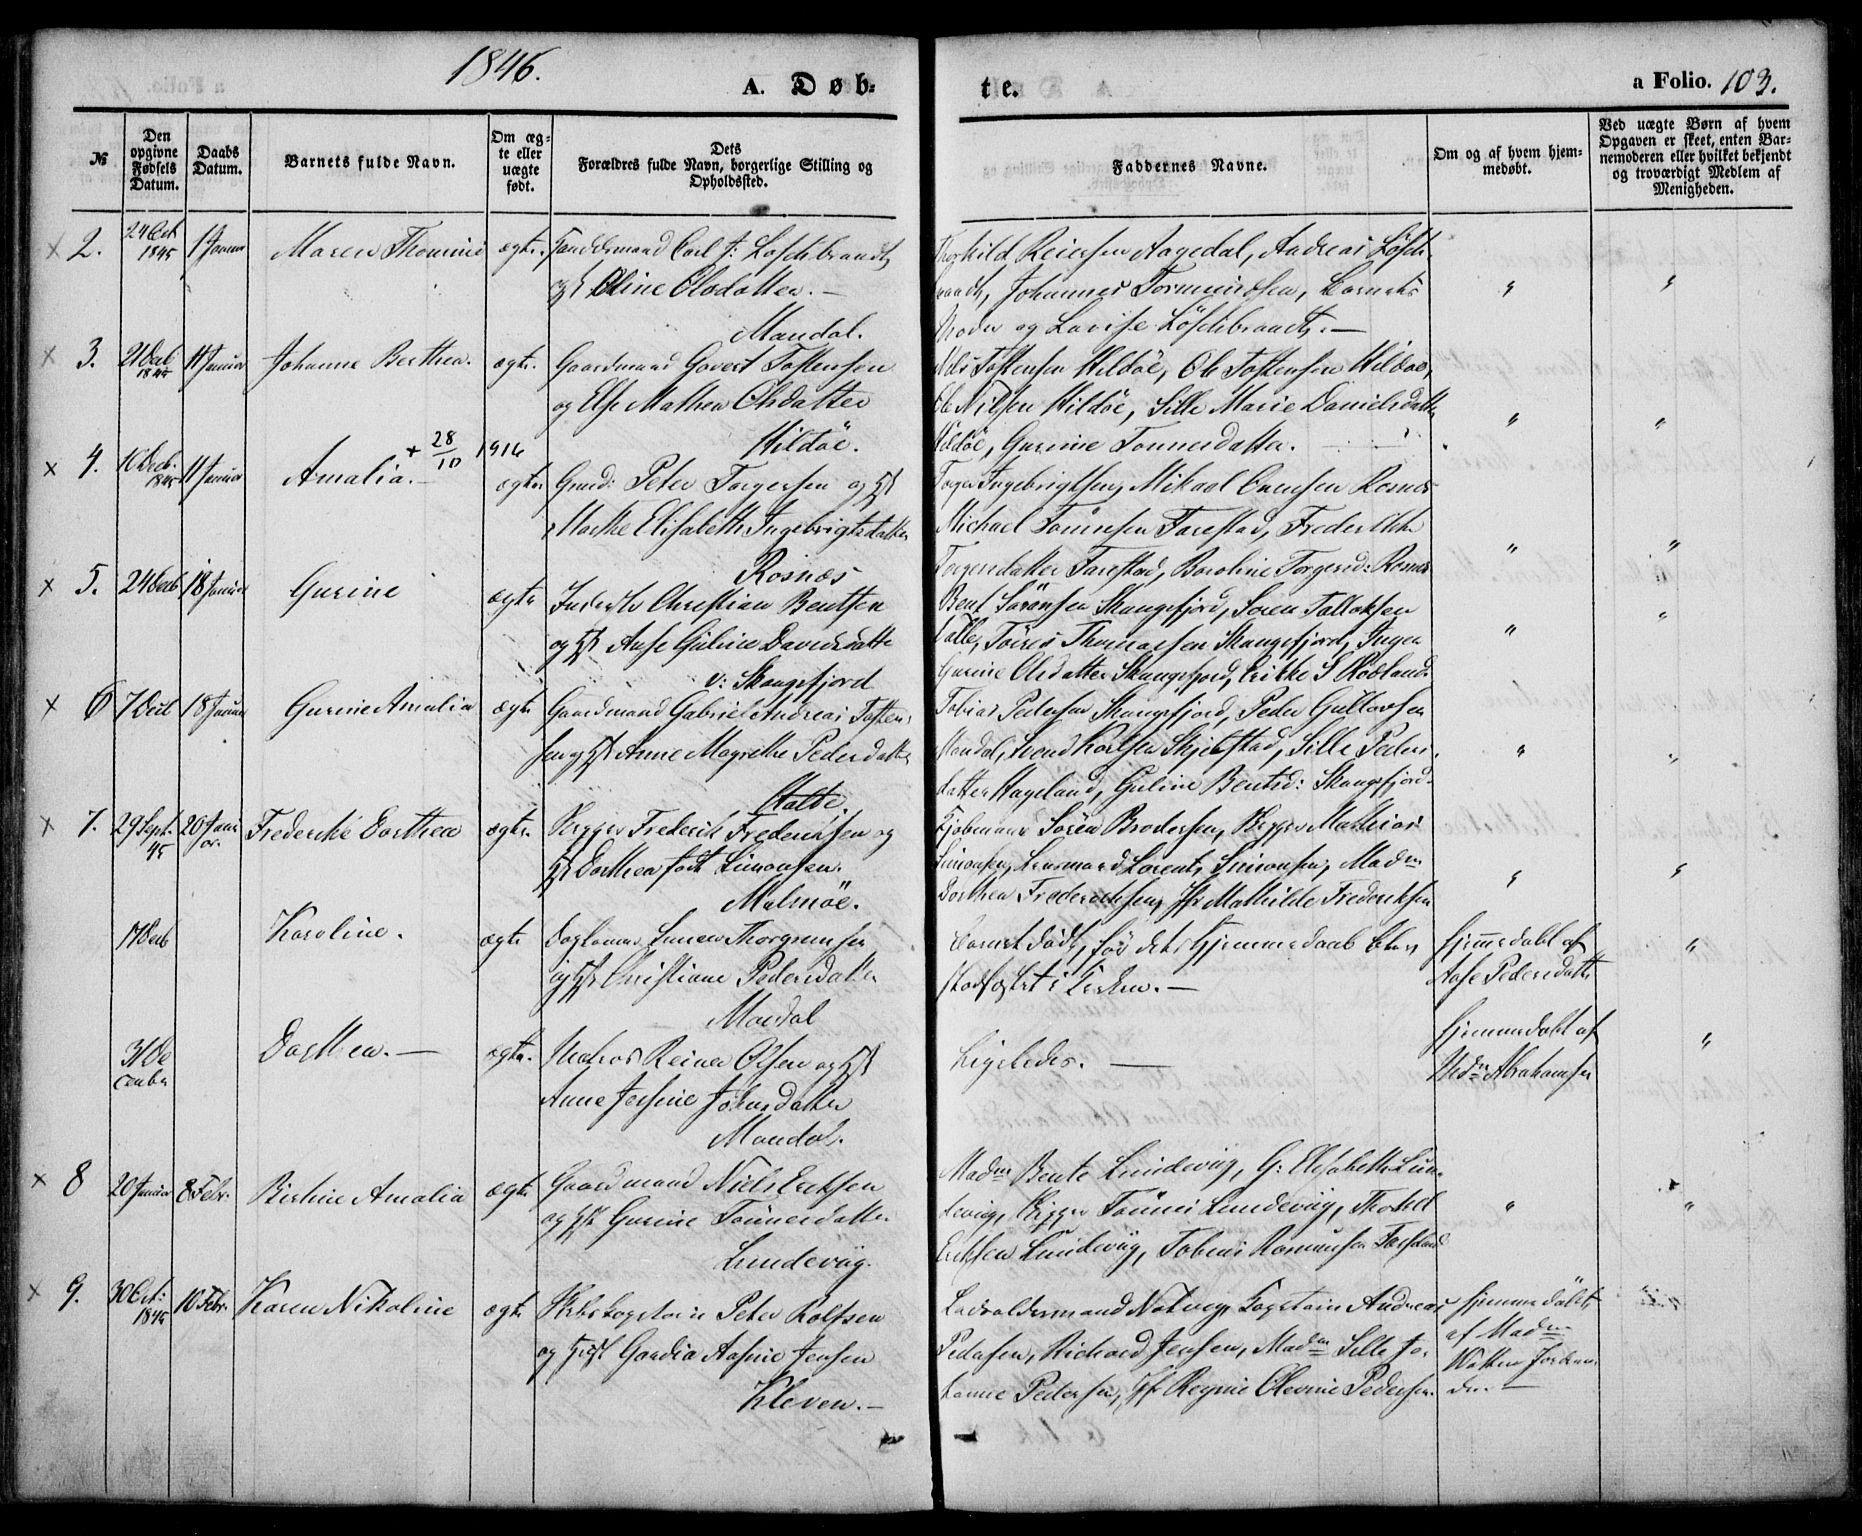 1846.
A. Døb-
te.
a Folio. 103.
№
Den opgivne Fødsels Datum.
Daabs Datum.
Barnets fulde Navn.
Om æg-te eller uægte født.
Dets Forældres fulde Navn, borgerlige Stilling og Opholdssted.
Faddernes Navne.
Om og af hvem hjem-medøbt.
Ved uægte Børn af hvem Opgaven er skeet, enten Bar-nemoderen eller hvilket bekjendt og troværdigt Medlem af Menigheden.
x 2. 24 Oct 1845 1 Januar Maren Thomine ægte. Carl J: Løschbrandt
og H Oline Olsdatter.
Mandal.
Reiersen Aagedal, Andreas Løsch-
brandt, Johannes Tormundsen, Barnets
Moder og Lovise Løschbrandt. "
x 3. 21 Decb 1845 11 Januar Johanne Berthea. ægte. Gaardmand Govert Tostensen
og Else Mathea Olsdatter
Hildøe.
Nils Tostensen Hildøe, Ole Tostensen Hildøe,
Ole Nilsen Hildøe, Sille Marie Danielsdatter
Hildøe, Gurine Tønnesdatter. "
x 4. 16 Decb. 1845 11 Januar Amalia. + 28/10 1916 ægte Gmd: Peter Torgersen og H
Marthe Elisabeth Ingebrigtsdatter
Rosnæs
Torger Ingebrigtsen, Mikael Evensen Rosnes
Michael Tønnesen Farestad, Frederikke
Torgersdatter Farestad, Boroline Torgersd: Rosnes "
x 5. 24 Decb 18 Januar Gurine ægte Inderst Christian Bentsen
og H Aase Guline Davidsdatter
v: Skougsfjord
Bent Sørensen Skaugsfjord, Søren Tallaksen
Valle, Tønnes Thomassen Skaugsfjord, Inger
Gurine Olsdatter Skaugsfjord, Erikke S Rødland "
x 6 7 Decb 18 Januar Gurine Amalia ægte Gaardmand Gabriel Andreas Tosten-
sen og H Anne Magrethe Pedersdatter
Halse.
Tobias Pedersen Skaugsfjord, Peder Gullovsen
Mandal, Svend Karlsen Skjebstad, Sille Peders-
datter Hageland, Guline Bentsd: Skaugsfjord. "
x 7. 29 Sept. 45 20 Janu-ar. Frederike Dorthea ægte. Skipper Frederik Frederiksen og
H Dorthea født Simonsen.
Malmøe.
Kjøbmand Søren Brodersen, Skipper Mathias
Simonsen, Lensmand Lorents Simonsen, Madm
Dorthea Frederiksen, Jfr Mathilde Frederiksen "
17 Decb Karoline. ægte Thorgrimsen
og H Christiane Pedersdatter
Mandal
Barnet døde, før dets Hjemmedaab blev
stadfæstet i Kirken.
hjemmedøbt af
Aase Pedersdatter "
31 De cember Dorthea. ægte. Matros Reiner Olsen og H
Anne Jensine Johnsdatter
Mandal.
Ligeledes.
hjemmedøbt af
Madm Abrahamsen "
x 8 20 Januar 8 Febr. Birthine Amalia ægte Gaardmand Niels Eriksen
og H Gurine Tønnesdatter
Lundevig.
Madm Bente Lundevig, G: Elisabeth Lun-
devig, Skipper Tønnes Lundevig, Thorkel
Eriksen Lundevig, Tobias Rasmusen Farestad "
x 9. 30 Oct: 1845 10 Febr. Karen Nikoline ægte Skibskaptain Peter Rolfsen
og Hust Aasine Jensen
Kleven.
Lodsoldermand Natvig, Captain Andreas
Pedersen, Richard Jensen, Madm Sille Jo-
hanne Pedersen, Jfr Regine Olevine Pedersen.
hjemmedøbt
af Madm